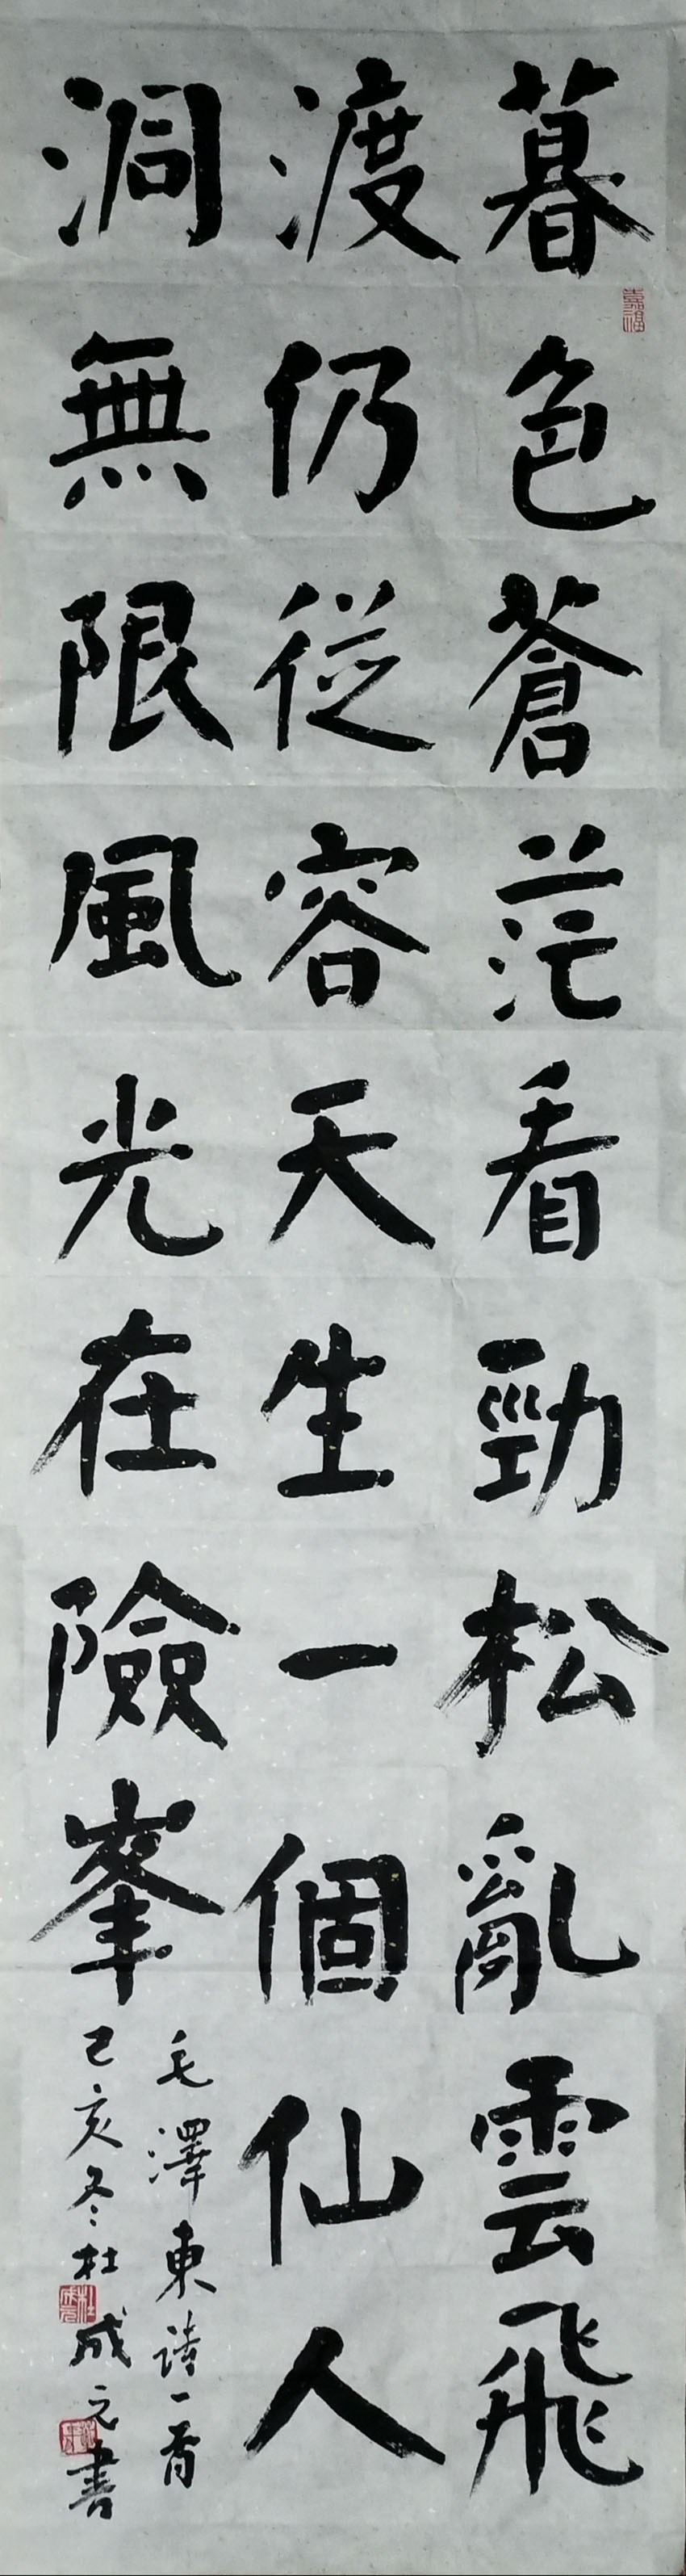 暮色蒼茫看勁松亂雲飛
渡仍從容天生一個仙人
洞無限風光在險峯
毛澤東詩一首
己亥冬杜成元書